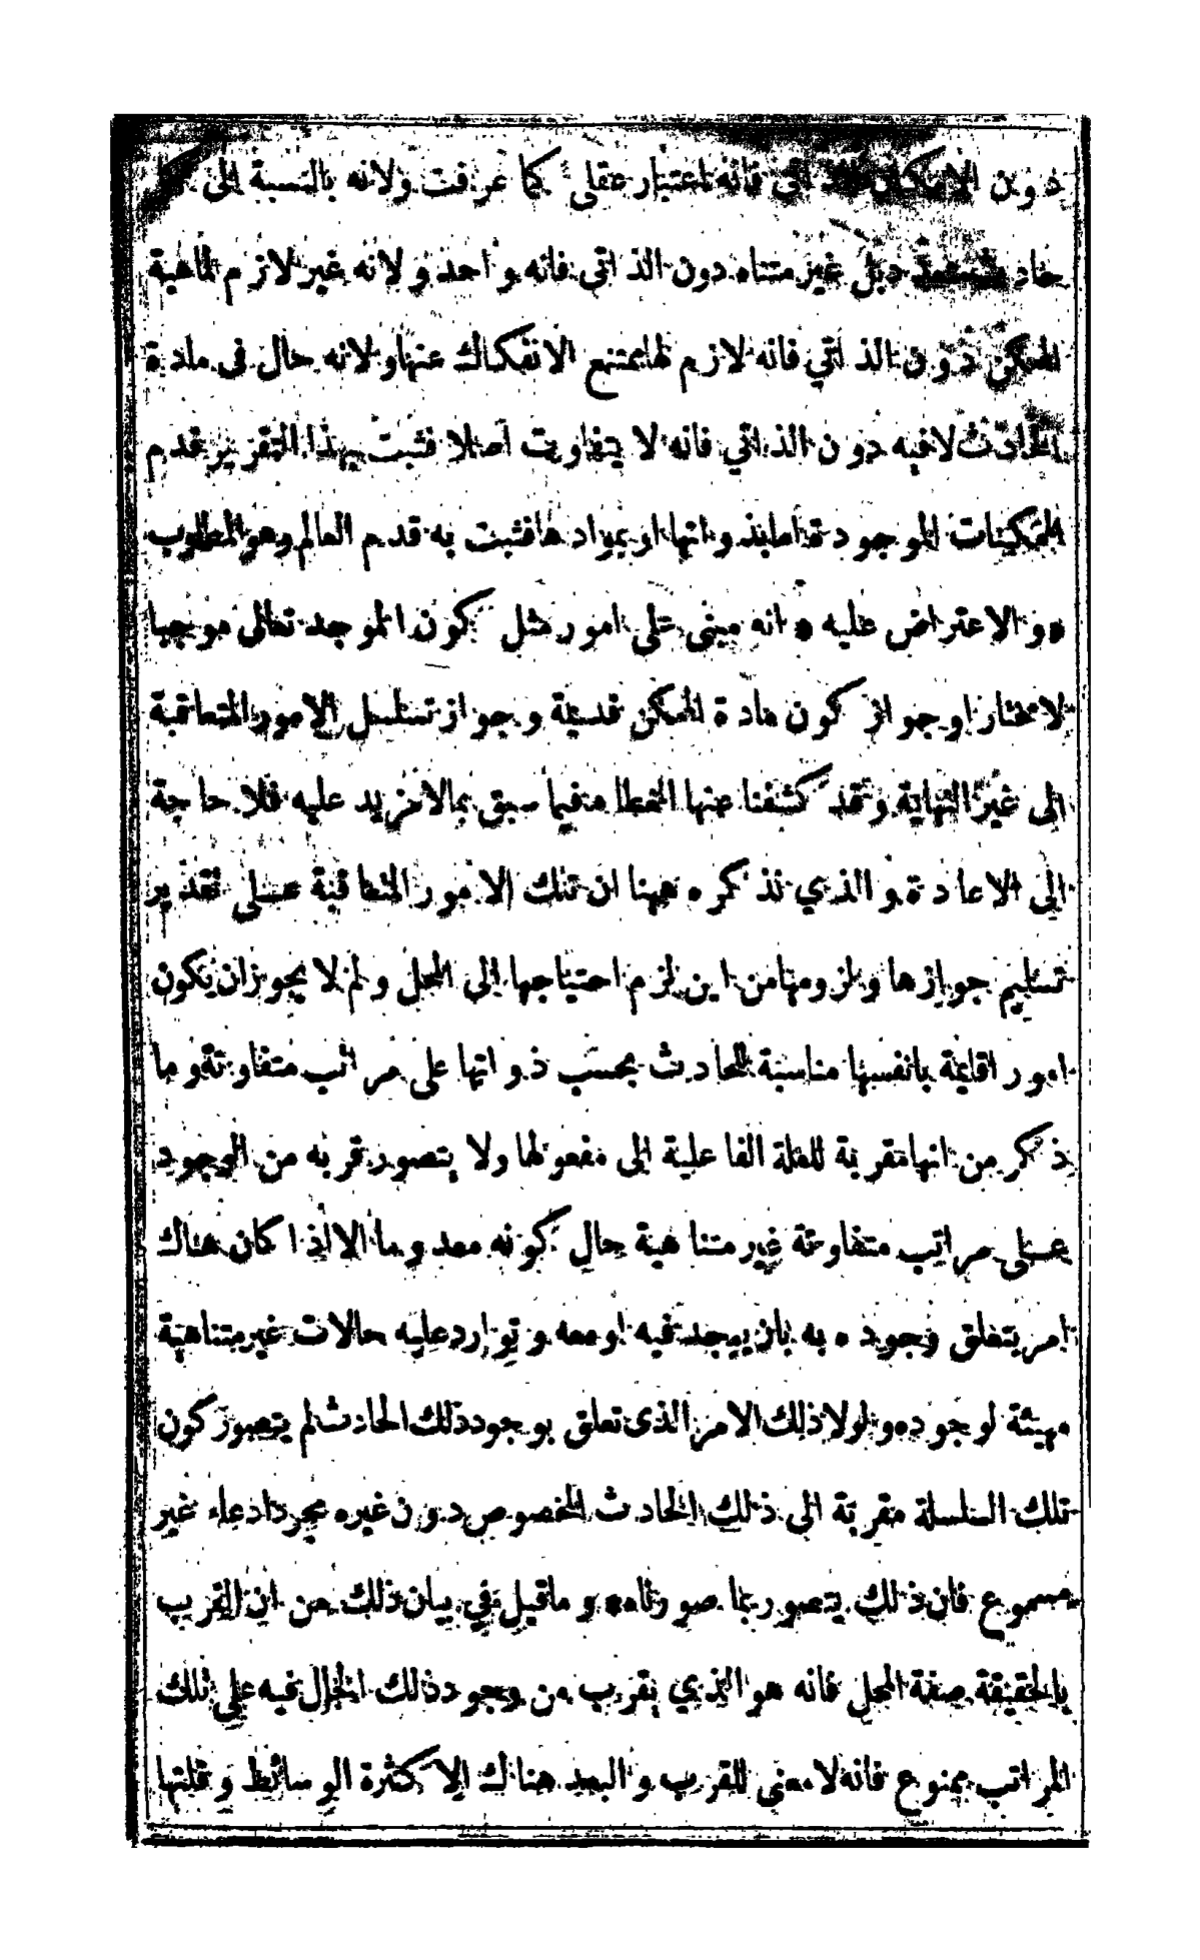 دون الامكان الذاتى فانه اعتبار عقلى كما عرفت ولانه بالنسبة الى
حادث دبل غير متناه دون الذاتى فانه واحد ولانه غير لازم لماهية
الممكن دون الذاتي فانه لازم لها يمتنع الانفكاك عنها ولانه حال فى مادة
الحادث لا فيه دون الذاتي فانه لا يتفاوت اصلا فثبت بهذا التقرير قدم
الممكنات الموجودة اما بذواتها او بموادها فثبت به قدم العالم وهو المطلوب
* والاعتراض عليه * انه مبنى على امور مثل كون الموجد تعالى موجبا
لا مختارا وجواز كون مادة الممكن قديمة وجواز تسلسل الامور المتعاقبة
الى غير النهاية وقد كشفنا عنها الغطاء فيما سبق بما لا مزيد عليه فلا حاجة
الى الاعادة والذي نذكره ههنا ان تلك الامور المتعاقبة عـلى تقدير
تسليم جوازها ولزومها من اين لزم احتياجها الى المحل ولم لا يجوز ان يكون
امورا قايمة بانفسها مناسبة للحادث بحسب ذواتها على مراتب متفاوتة وما
ذكر من انها مقربة للعلة الفاعلية الى مفعولها ولا يتصور قربه من الوجود
عـلى مراتب متفاوتة غير متناهية حال كونه معدوما الا اذا كان هناك
امر يتعلق وجوده به بان يوجد فيه او معه وتوارد عليه حالات غير متناهية
مهيئة لوجوده ولولا ذلك الامر الذى تعلق بوجود ذلك الحادث لم يتصور كون
تلك السلسلة مقربة الى ذلك الحادث المخصوص دون غيره مجرد ادعاء غير
مسموع فان ذلك يتصور بما صورناه * وما قيل في بيان ذلك من ان القرب
بالحقيقة صفة المحل فانه هو الذي يقرب من وجود ذلك الحال فيه على تلك
المراتب ممنوع فانه لا معنى للقرب والبعد هناك الا كثرة الوسائط وقلتها